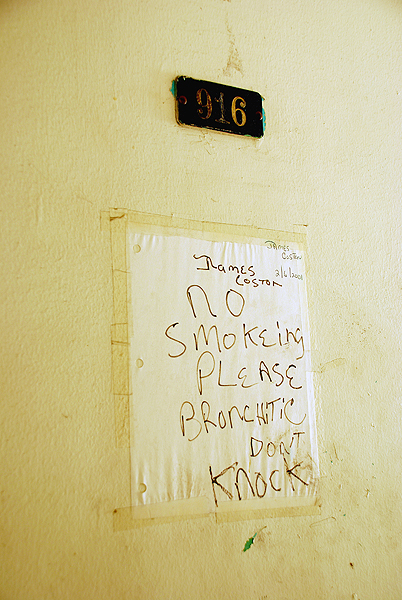 916
James
Coston
2/6/2005
James
Coston
NO
SMOKEing
PLEASE
BRONCHITIC
DON'T
KNOCK